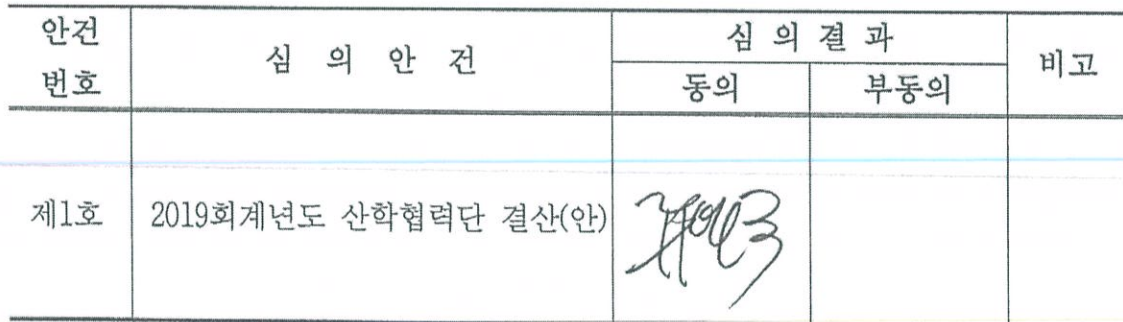 안건
번호
심 의 안 건
심 의 결 과
동의
부동의
비고
제1호
2019회계년도 산학협력단 결산(안)